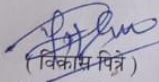 (विकास पित्रे)